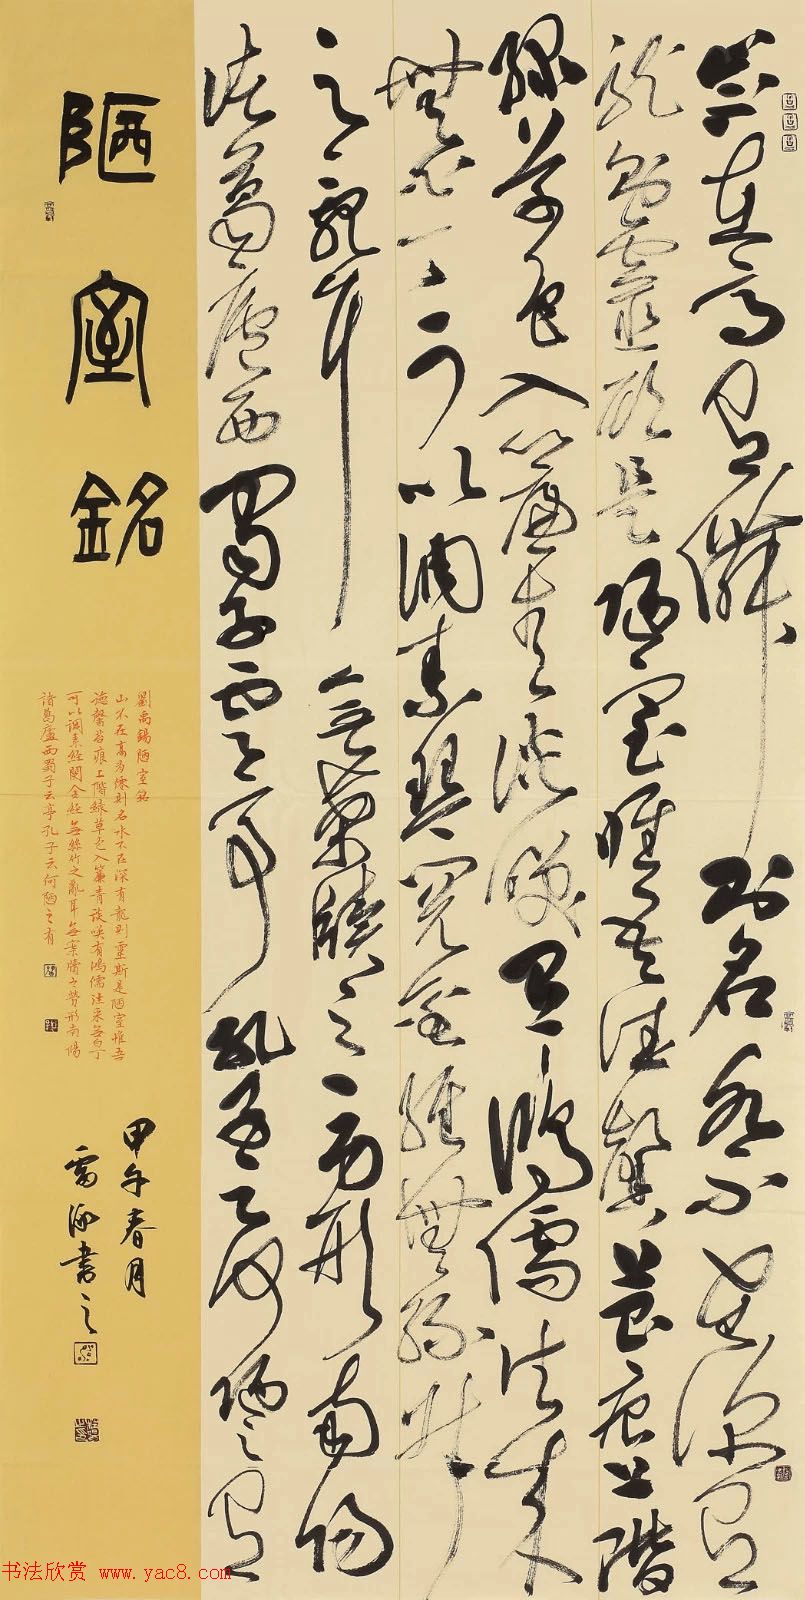 山不在高有仙則名水不在深有
龍則靈斯是陋室惟吾德馨苔痕上階
綠草色入簾青談笑有鴻儒往來
無白丁可以調素琴閱金經無絲竹
之亂耳無案牘之勞形南陽
諸葛廬西蜀子雲亭孔子云何陋之有
陋室銘
劉禹錫陋室銘
山不在高有仙則名水不在深有龍則靈斯是陋室惟吾
德馨苔痕上階綠草色入簾青談笑有鴻儒往來無白丁
可以調素閱金經無絲竹之亂耳無案牘之勞形南陽
諸葛廬西蜀子云亭孔子云何陋之有
甲午春月
書之
书法欣赏 www.yac8.com